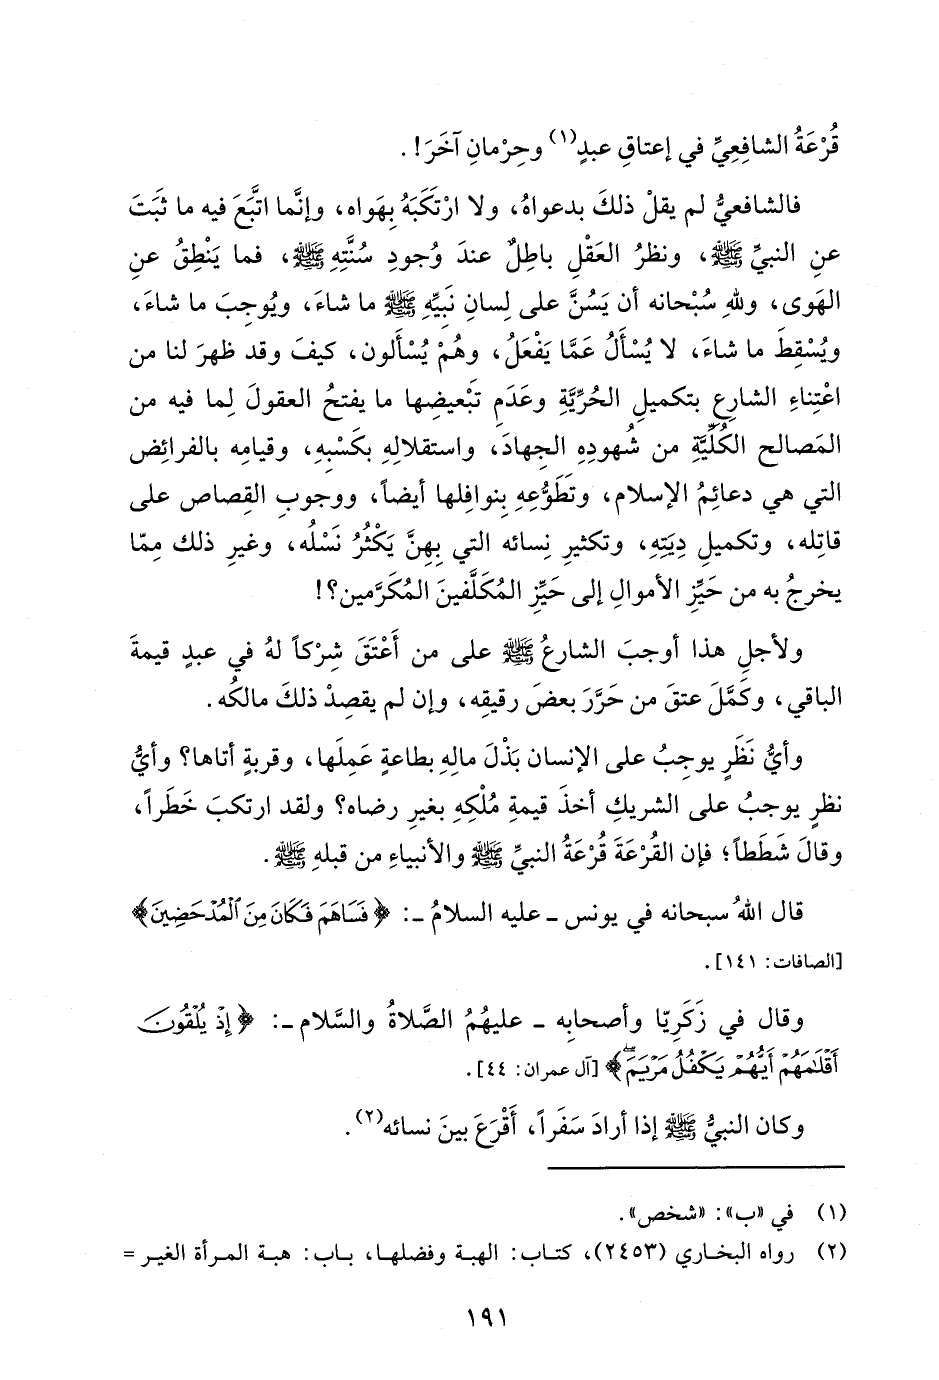 قُرْعَةُ الشافِعِيِّ في إعتاقِ عبدٍ(١) وحِرْمانِ آخَرَ! .
فالشافعيُّ لم يقلْ ذلكَ بدعواهُ، ولا ارْتكَبَهُ بِهَواه، وإنَّما اتَّبَعَ فيه ما ثَبَتَ
عنِ النبيِّ ﷺ، ونظرُ العَقْلِ باطِلٌ عندَ وُجودِ سُنَّتِهِ ﷺ، فما يَنْطِقُ عنِ
الهَوى، وللهِ سُبْحانه أن يَسُنَّ على لِسانِ نَبيِّهِ ﷺ ما شاءَ، ويُوجِبَ ما شاءَ،
ويُسْقِطَ ما شاءَ، لا يُسْأَلُ عَمَّا يَفْعَلُ، وهُمْ يُسْألون، كيفَ وقد ظهرَ لنا من
اعْتِناءِ الشارِعِ بتكميلِ الحُرِّيَّةِ وعَدَمِ تَبْعيضِها ما يفتحُ العقولَ لِما فيه من
المَصالحِ الكُلِّيَّةِ من شُهودِهِ الجِهادَ، واستقلالِهِ بكَسْبِهِ، وقيامِه بالفرائِض
التي هي دعائِمُ الإسلام، وتَطَوُّعِهِ بنوافلِها أيضاً، ووجوبِ القِصاص على
قاتِله، وتكميلِ دِيَتِهِ، وتكثيرِ نِسائه التي بِهِنَّ يَكْثُرُ نَسْلُه، وغيرِ ذلك مِمّا
يخرجُ به من حَيِّزِ الأموالِ إلى حَيِّزِ المُكَلَّفينَ المُكَرَّمين؟!
ولأجلِ هذا أوجبَ الشارعُ ﷺ على من أَعْتَقَ شِرْكاً لهُ في عبدٍ قيمةَ
الباقي، وكَمَّلَ عتقَ من حَرَّرَ بعضَ رقيقِه، وإن لم يقصِدْ ذلكَ مالكُه.
وأيُّ نَظَرٍ يوجِبُ على الإنسان بَذْلَ مالِهِ بطاعةٍ عَمِلَها، وقربةٍ أتاها؟ وأيُّ
نظرٍ يوجبُ على الشريكِ أخذَ قيمةِ مُلْكِهِ بغيرِ رضاه؟ ولقد ارتكبَ خَطَراً،
وقالَ شَطَطاً؛ فإن القُرْعَةَ قُرْعَةُ النبيِّ ﷺ والأنبياءِ من قبلهِ ﷺ.
قال اللهُ سبحانه في يونس - عليه السلامُ -: ﴿فَسَاهَمَ فَكَانَ مِنَ ٱلْمُدْحَضِينَ﴾
[الصافات: ١٤١].
وقال في زَكَرِيّا وأصحابِه - عليهُمُ الصَّلاةُ والسَّلام -: ﴿إِذْ يُلْقُونَ
أَقْلَٰمَهُمْ أَيُّهُمْ يَكْفُلُ مَرْيَمَ﴾ [آل عمران: ٤٤].
وكان النبيُّ ﷺ إذا أرادَ سَفَراً، أَقْرَعَ بينَ نسائه(٢).
(١) في «ب»: «شخص».
(٢) رواه البخاري (٢٤٥٣)، كتاب: الهبة وفضلها، باب: هبة المرأة الغير =
١٩١